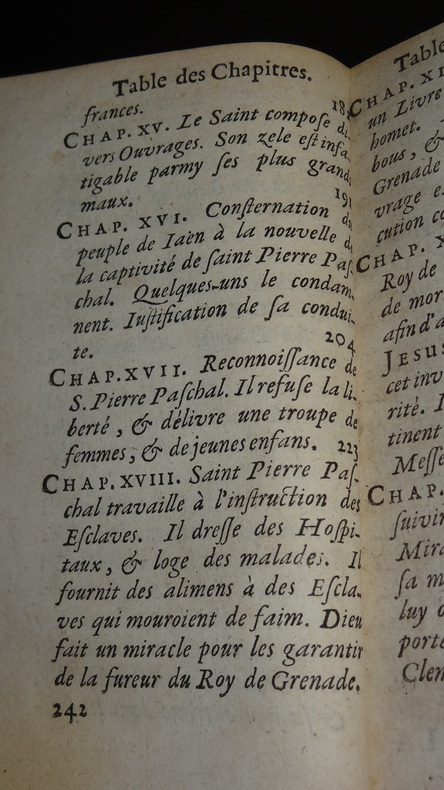 Table des Chapitres.
frances. 18
CHAP. XV. Le Saint compose di-
vers Ouvrages. Son zele est infa-
tigable parmy ses plus grands
maux. 191
CHAP. XVI. Consternation du
peuple de Iaën à la nouvelle de
la captivité de saint Pierre Pas-
chal. Quelques-uns le condam-
nent. Iustification de sa condui-
te. 204
CHAP. XVII. Reconnoissance de
S. Pierre Paschal. Il refuse la li-
berté, & délivre une troupe de
femmes, & de jeunes enfans. 223
CHAP. XVIII. Saint Pierre Pas-
chal travaille à l'instruction des
Esclaves. Il dresse des Hospi-
taux, & loge des malades. Il
fournit des alimens à des Escla-
ves qui mouroient de faim. Dieu
fait un miracle pour les garantir
de la fureur du Roy de Grenade.
242
Table
CHAP. XI
un Livre
homet.
bous, &
Grenade
vrage e
cution c
CHAP. X
Roy de
de mor
afin d'a
JESUS
cet inv
rité. I
tinent
Messe
CHAP.
suivir
Mira
sa m
luy
porte
Clem